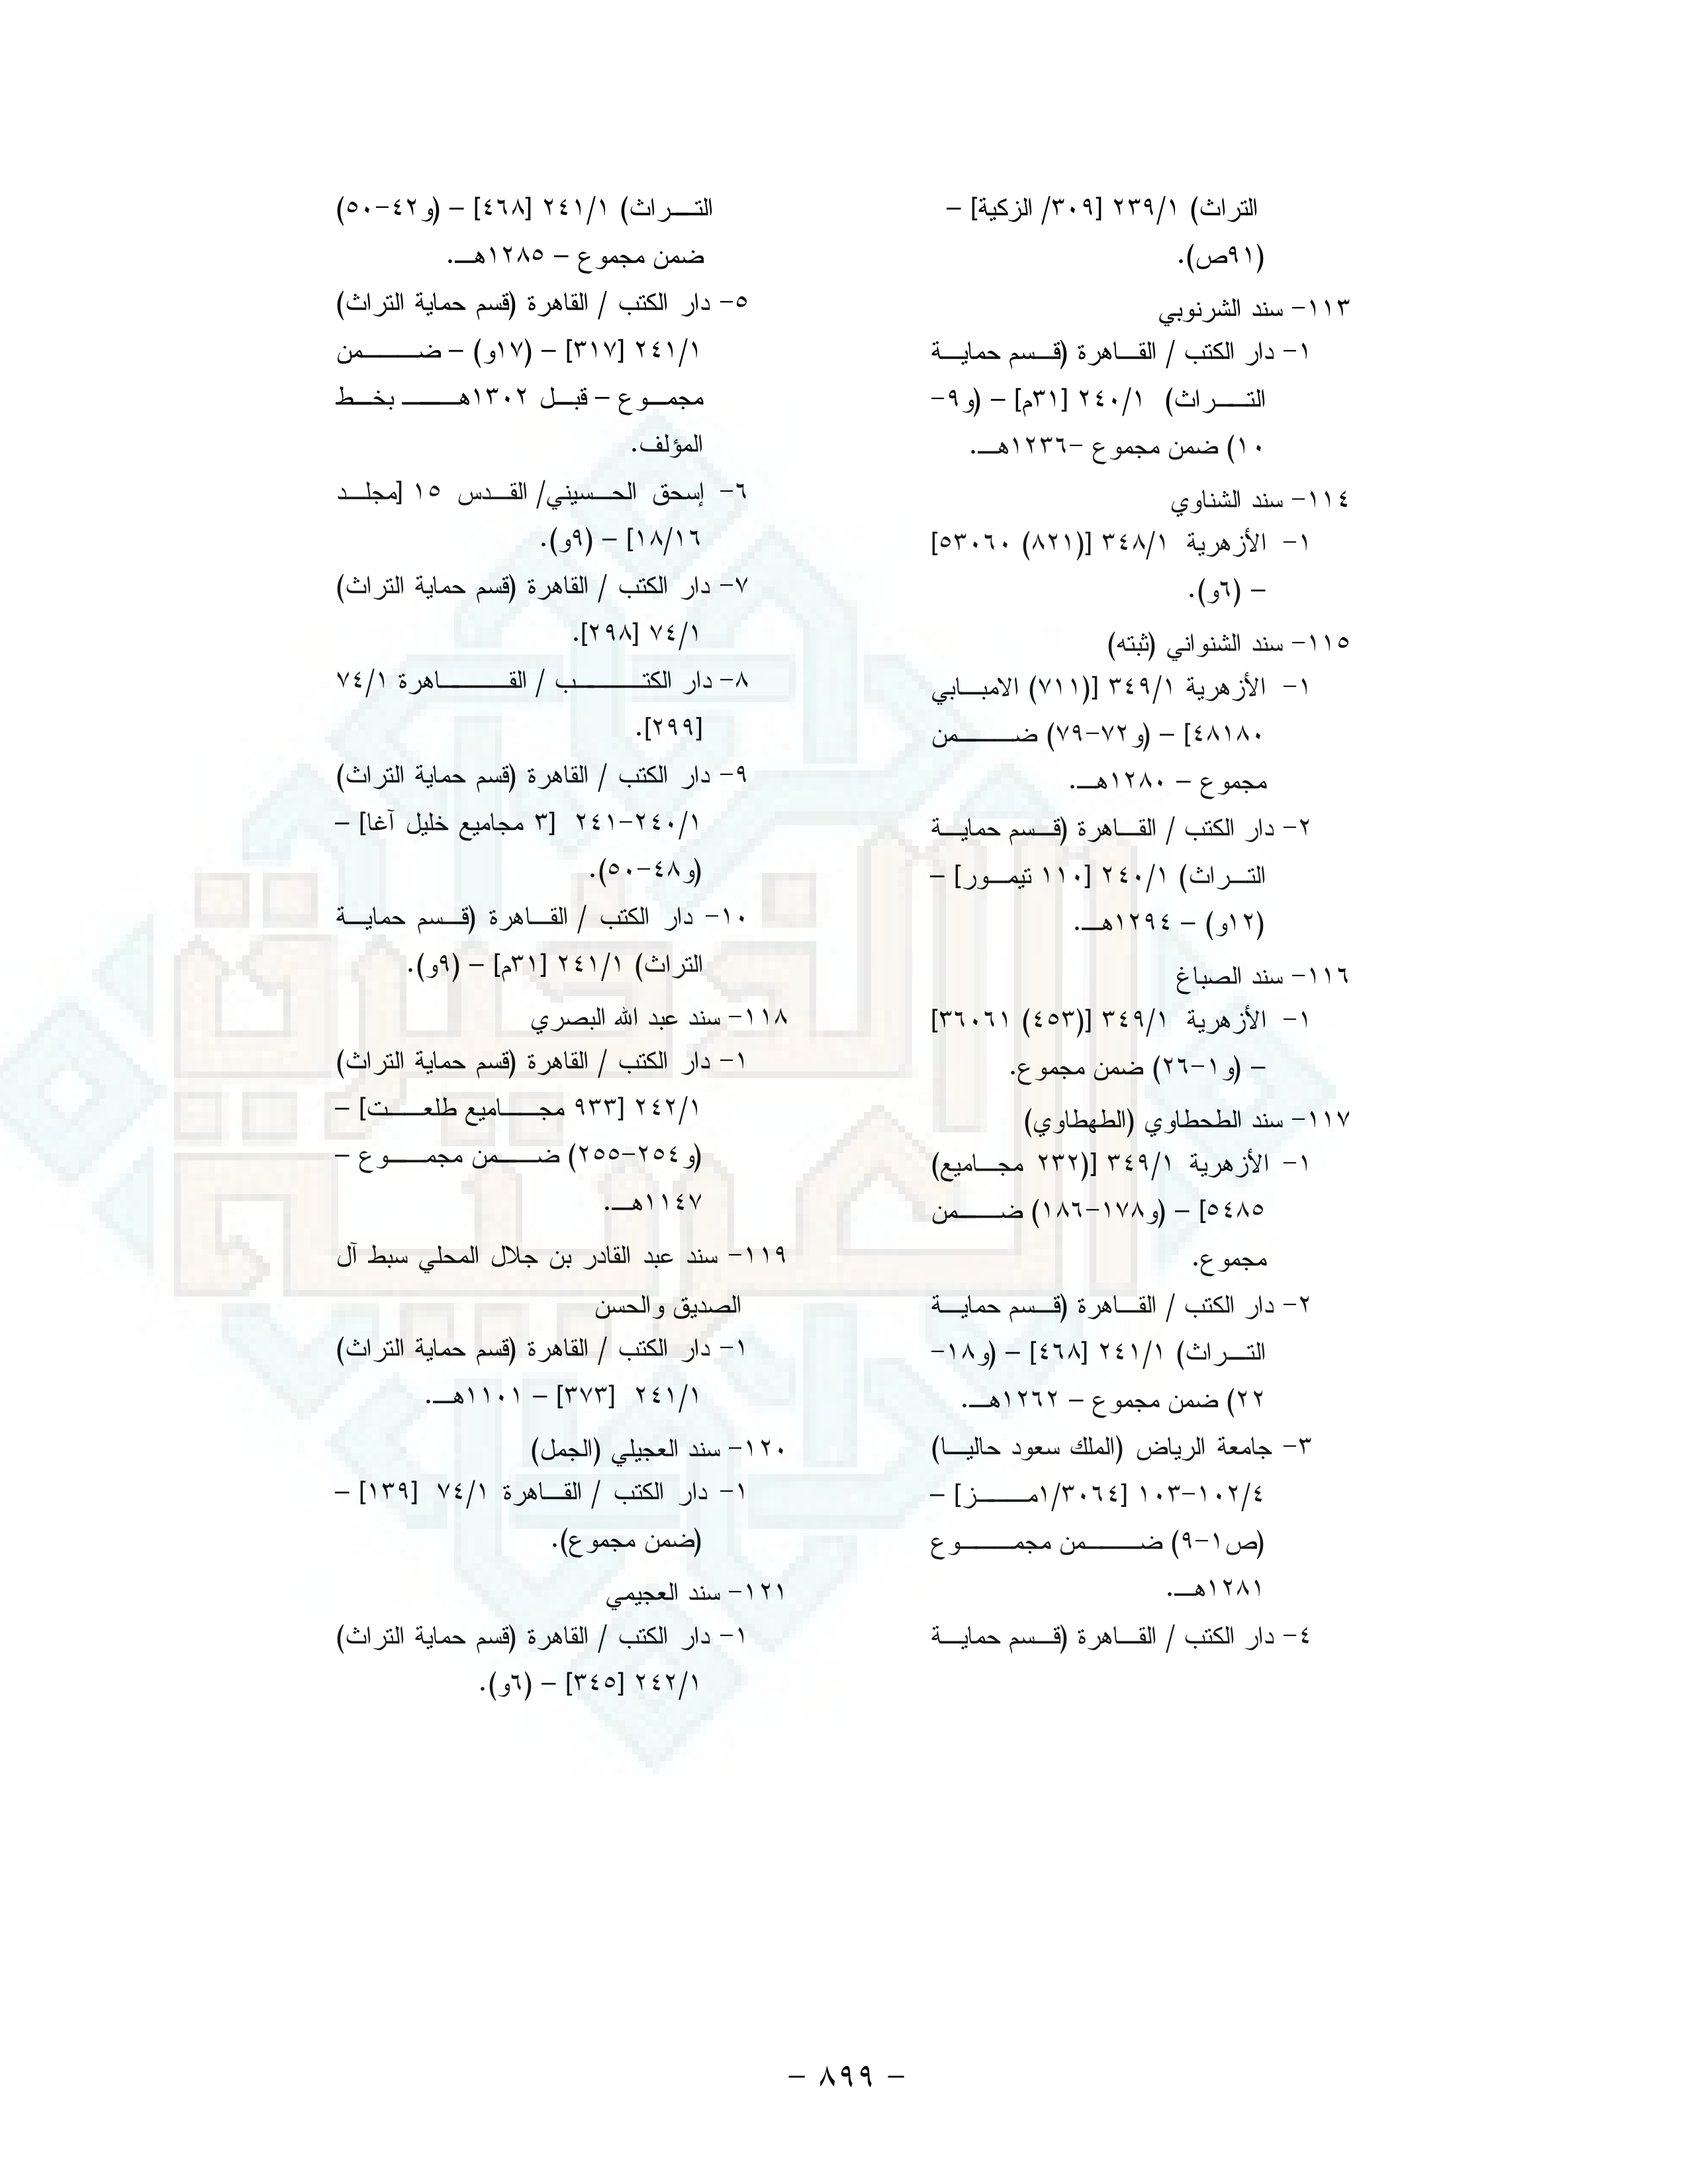 التراث) ٢٣٩/١ [٣٠٩/ الزكية] –
(٩١ص).
١١٣- سند الشرنوبي
١- دار الكتب / القاهرة (قسم حماية
التراث) ٢٤٠/١ [٣١م] – (و٩-
١٠) ضمن مجموع -١٢٣٦هـ.
١١٤- سند الشناوي
١- الأزهرية ٣٤٨/١ [(٨٢١) ٥٣٠٦٠]
– (٦و).
١١٥- سند الشنواني (ثبته)
١- الأزهرية ٣٤٩/١ [(٧١١) الامبابي
٤٨١٨٠] – (و٧٢-٧٩) ضمن
مجموع – ١٢٨٠هـ.
٢- دار الكتب / القاهرة (قسم حماية
التراث) ٢٤٠/١ [١١٠ تيمور] –
(١٢و) – ١٢٩٤هـ.
١١٦- سند الصباغ
١- الأزهرية ٣٤٩/١ [(٤٥٣) ٣٦٠٦١]
– (و١-٢٦) ضمن مجموع.
١١٧- سند الطحطاوي (الطهطاوي)
١- الأزهرية ٣٤٩/١ [(٢٣٢ مجاميع)
٥٤٨٥] – (و١٧٨-١٨٦) ضمن
مجموع.
٢- دار الكتب / القاهرة (قسم حماية
التراث) ٢٤١/١ [٤٦٨] – (و١٨-
٢٢) ضمن مجموع – ١٢٦٢هـ.
٣- جامعة الرياض (الملك سعود حاليا)
١٠٢/٤-١٠٣ [١/٣٠٦٤مز] –
(ص١-٩) ضمن مجموع
١٢٨١هـ.
٤- دار الكتب / القاهرة (قسم حماية
التراث) ٢٤١/١ [٤٦٨] – (و٤٢-٥٠)
ضمن مجموع – ١٢٨٥هـ.
٥- دار الكتب / القاهرة (قسم حماية التراث)
٢٤١/١ [٣١٧] – (١٧و) – ضمن
مجموع – قبل ١٣٠٢هـ بخط
المؤلف.
٦- إسحق الحسيني/ القدس ١٥ [مجلد
١٨/١٦] – (٩و).
٧- دار الكتب / القاهرة (قسم حماية التراث)
٧٤/١ [٢٩٨].
٨- دار الكتب / القاهرة ٧٤/١
[٢٩٩].
٩- دار الكتب / القاهرة (قسم حماية التراث)
٢٤٠/١-٢٤١ [٣ مجاميع خليل آغا] –
(و٤٨-٥٠).
١٠- دار الكتب / القاهرة (قسم حماية
التراث) ٢٤١/١ [٣١م] – (٩و).
١١٨- سند عبد الله البصري
١- دار الكتب / القاهرة (قسم حماية التراث)
٢٤٢/١ [٩٣٣ مجاميع طلعت] –
(و٢٥٤-٢٥٥) ضمن مجموع –
١١٤٧هـ.
١١٩- سند عبد القادر بن جلال المحلي سبط آل
الصديق والحسن
١- دار الكتب / القاهرة (قسم حماية التراث)
٢٤١/١ [٣٧٣] – ١١٠١هـ.
١٢٠- سند العجيلي (الجمل)
١- دار الكتب / القاهرة ٧٤/١ [١٣٩] –
(ضمن مجموع).
١٢١- سند العجيمي
١- دار الكتب / القاهرة (قسم حماية التراث)
٢٤٢/١ [٣٤٥] – (٦و).
- ٨٩٩ -